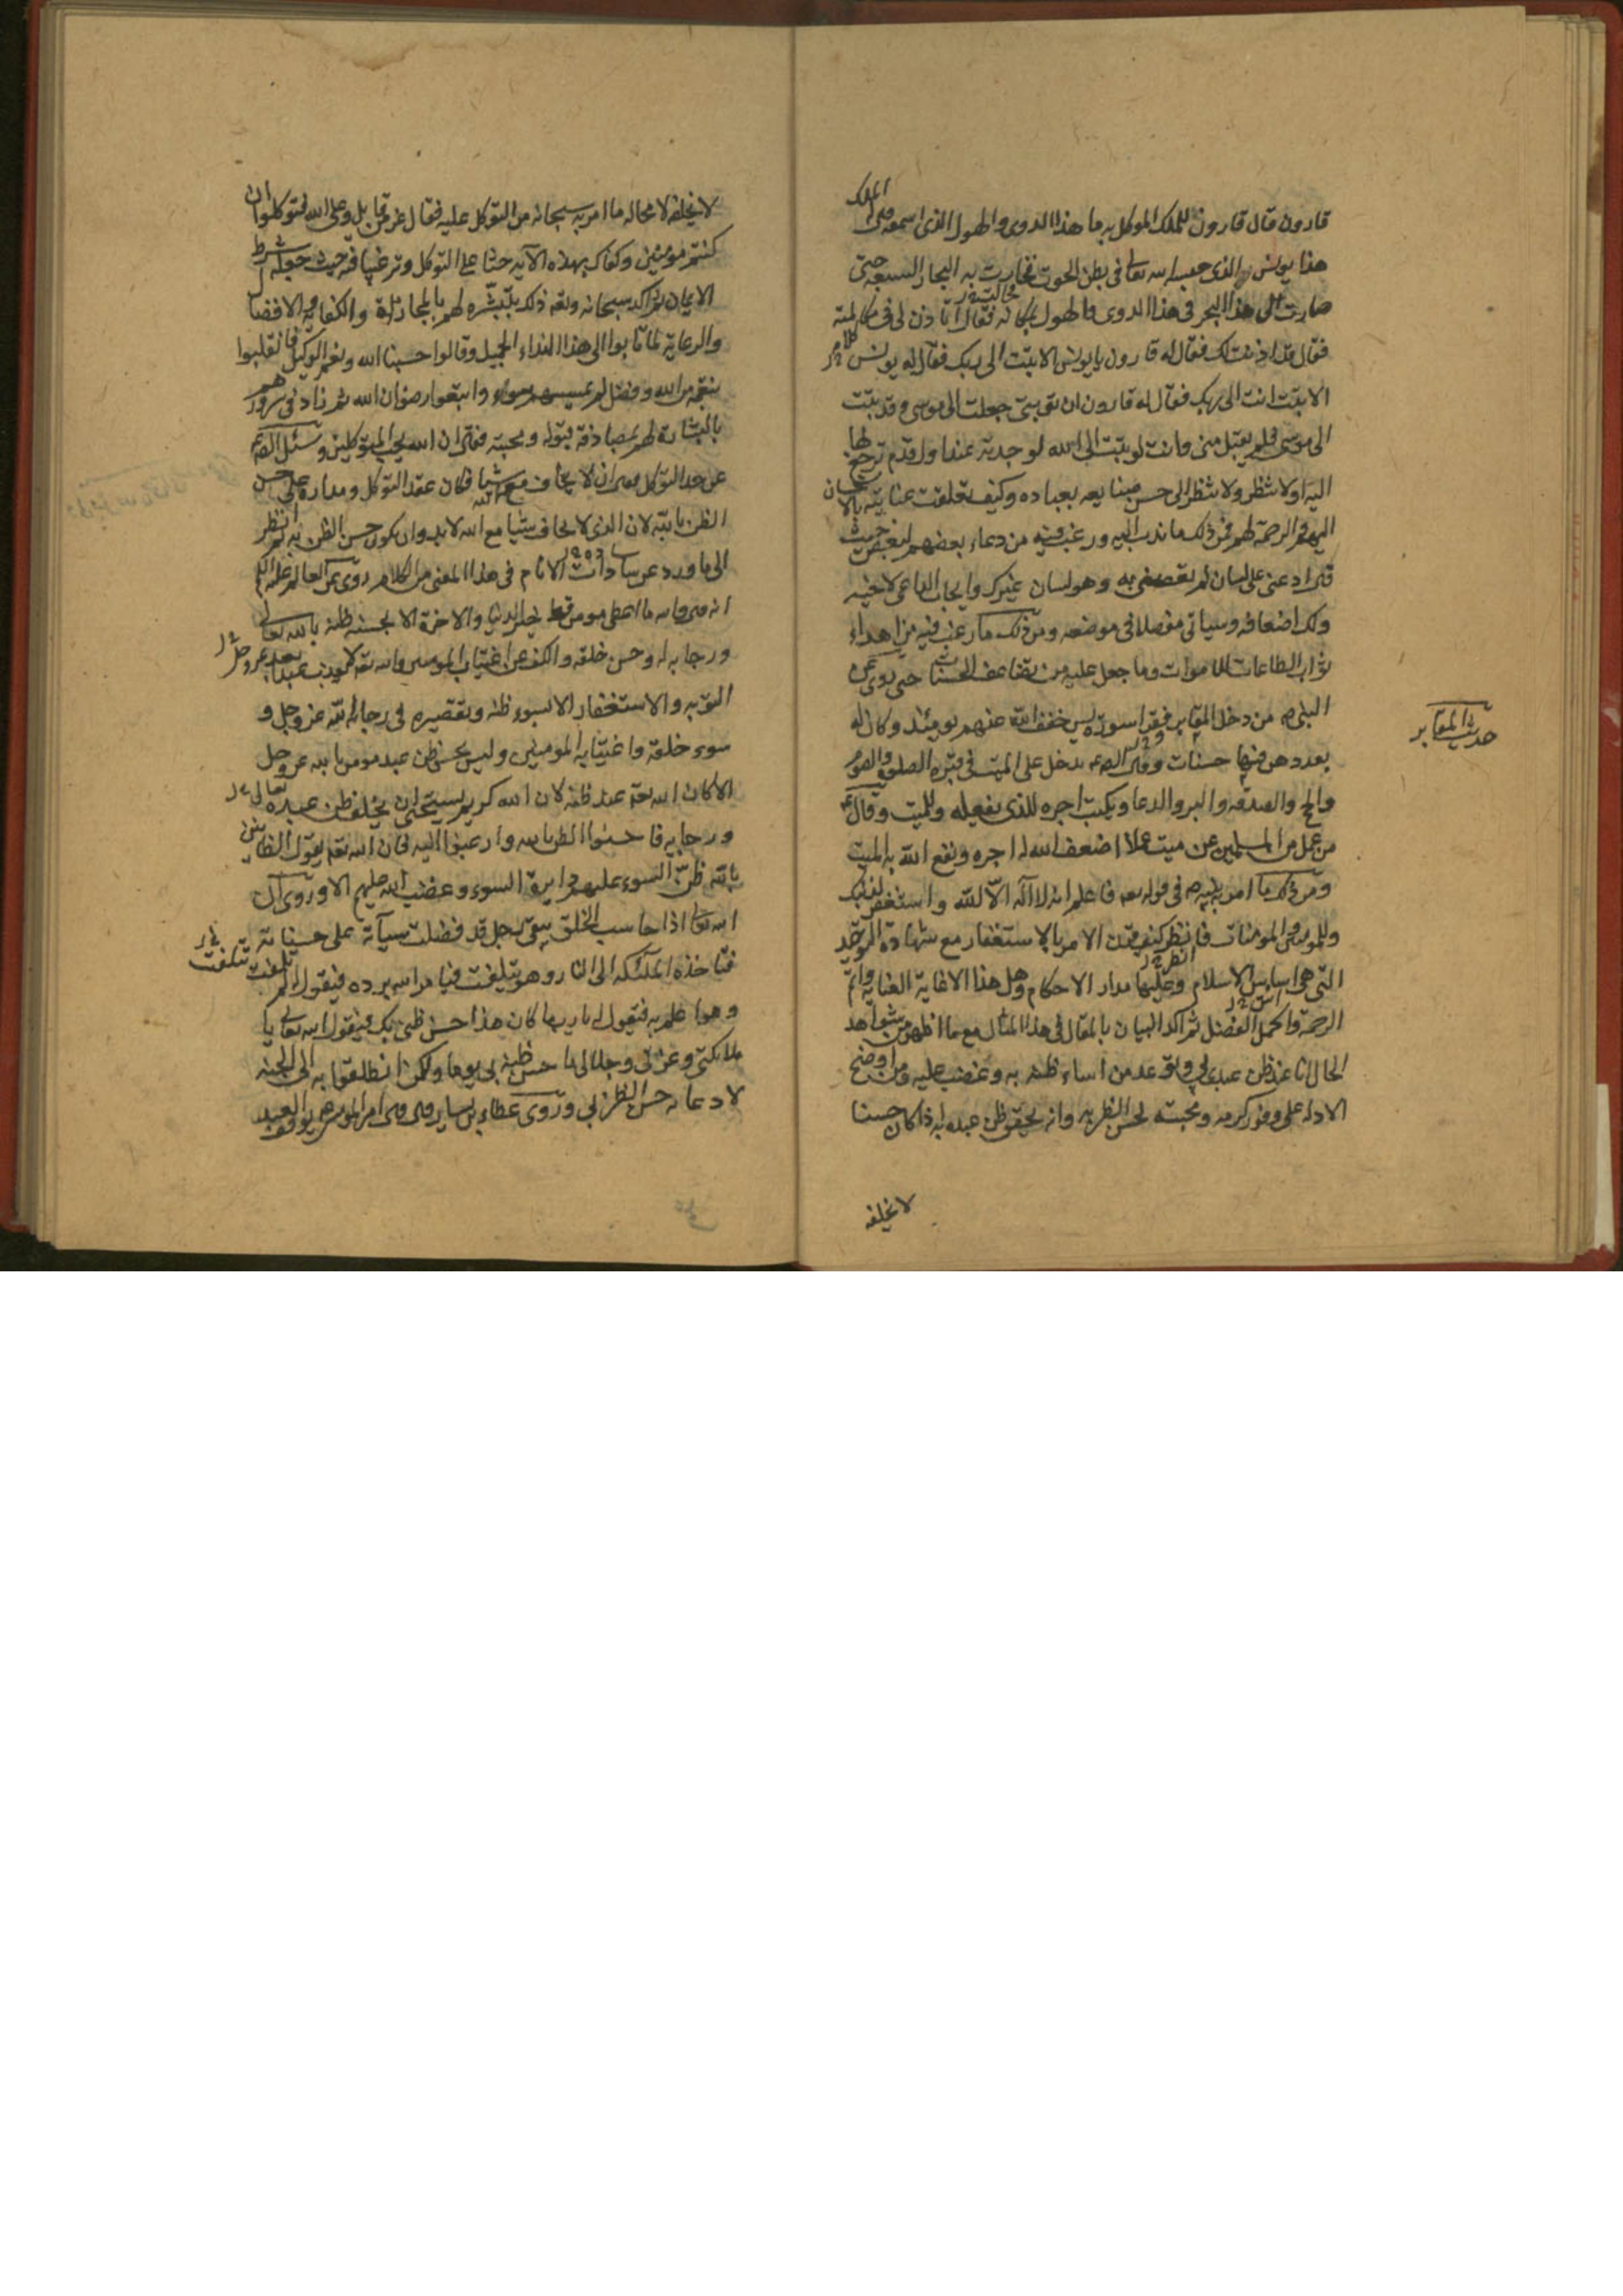 قارون قال قارون للملك الموكل به ما هذا الدوى والهول الذى اسمعه قال الملك
هذا يونس الذى حبسه الله تعالى فى بطن الحوت فجارت به البحار السبعة حتى
صارت الى هذا البحر فى هذا الدوى والهول لمكانه فقال اتاذن لى فى مكالمته
فقال قد اذنت لك فقال له قارون يا يونس الا تبت الى ربك فقال له يونس
الا تبت انت الى ربك فقال له قارون ان توبتى جعلت الى موسى وقد تبت
الى موسى فلم يقبل منى وانت لو تبت الى الله لوجدته عند اول قدم ترجع بها
اليه اولا تنظر ولا تنظر الى حسن صنايعه بعباده وكيف تعلقت عنايته بالاحسان
اليهم والرحمة لهم فمن ذلك ما ندب اليه ورغب فيه من دعاء بعضهم لبعض حيث
قال ادعنى على لسان لم تعصنى به وهو لسان غيرك وايجاب الداعى لاخيه
ولك اضعافه وسياتى مفصلا فى موضعه ومن ذلك ما رغب فيه من اهداء
ثواب الطاعات للاموات وما جعل عليه من تضاعف الحسنات حتى روى عن
النبى ص من دخل المقابر فقرا سورة يس خفف الله عنهم يومئذ وكان له
بعدد من فيها حسنات وقال ع يدخل على الميت فى قبره الصلوة والصوم
والحج والصدقه والبر والدعا ويكتب اجره للذى يفعله وللميت وقال ع
من عمل من المسلمين عن ميت عملا اضعف الله له اجره ونفع الله به الميت
ومن ذلك ما امر به نبيه ص فى قوله فاعلم انه لا اله الا الله واستغفر لذنبك
وللمومنين والمومنات فانظر كيف قرن الامر بالاستغفار مع شهادة التوحيد
التى هى اساس الاسلام وعليها مدار الاحكام وهل هذا الا غاية العناية واتم
الرحمة واكمل الفضل ثم اكد البيان بالمقال فى هذا المثال مع ما اظهر من شواهد
الحال انا عند ظن عبدى بى وتوعد من اساء ظنه به وغضب عليه ومن اوضح
الادله على وفور كرمه ومحبته لحسن الظن به وانه يحقق ظن عبده به اذا كان حسنا
لا يخلفه
حديث المقابر
لا يخلفه لا محاله ما امر به سبحانه من التوكل عليه فقال عز من قايل وعلى الله فتوكلوا ان
كنتم مومنين وكفاك بهذه الآية حثا على التوكل وترغيبا فيه حيث جعله شرط
الايمان ثم اكد سبحانه وتعه ذلك بتبشره لهم بالمجازاة والكفاية والافضال
والرعاية لما تابوا الى هذا النداء الجميل وقالوا حسبنا الله ونعم الوكيل فانقلبوا
بنعمة من الله وفضل لم يمسسهم سوء واتبعوا رضوان الله ثم زاد فى سرورهم
بالبشارة لهم بمصادفة قبوله ومحبته فقال ان الله يحب المتوكلين وسئل الص ع
عن حد التوكل فقال ان لا يخاف مع الله شيئا فكان عقد التوكل ومداره على حسن
الظن بالله لان الذى لا يخاف شيئا مع الله لا بد وان يكون حسن الظن به ثم انظر
الى ما ورد عن سادات الانام فى هذا المعنى من الكلام روى عن العالم عليه السلام
انه قال والله ما اعطى مومن قط خير الدنيا والاخرة الا بحسن ظنه بالله تعالى
ورجايه له وحسن خلقه والكف عن اغتياب المومنين والله تعه لا يعذب عبدا بعد
التوبه والاستغفار الا بسوء ظنه وتقصيره فى رجائه لله عز وجل و
سوء خلقه واغتيابه المومنين وليس يحسن ظن عبد مومن بالله عز وجل
الا كان الله تعه عند ظنه لان الله كريم يستحيى ان يخلف ظن عبده
ورجايه فاحسنوا الظن بالله وارغبوا اليه فان الله تعه يقول الظانين
بالله ظن السوء عليهم دايرة السوء وغضب الله عليهم الا وروى ان
الله تعالى اذا حاسب الخلق يبقى رجل قد فضلت سيآته على حسناته
فتاخذه الملئكه الى النار وهو يتلفت فيامر الله برده فيقول له لم تلفت
وهو اعلم به فيقول يا رب ما كان هذا حسن ظنى بك فيقول الله تعالى يا
ملائكتى وعزتى وجلالى ما حسن ظنه بى يوما ولكن انطلقوا به الى الجنة
لادعائه حسن الظن بى وروى عطاء بن يسار قال قال امير المومنين ع يوقف العبد